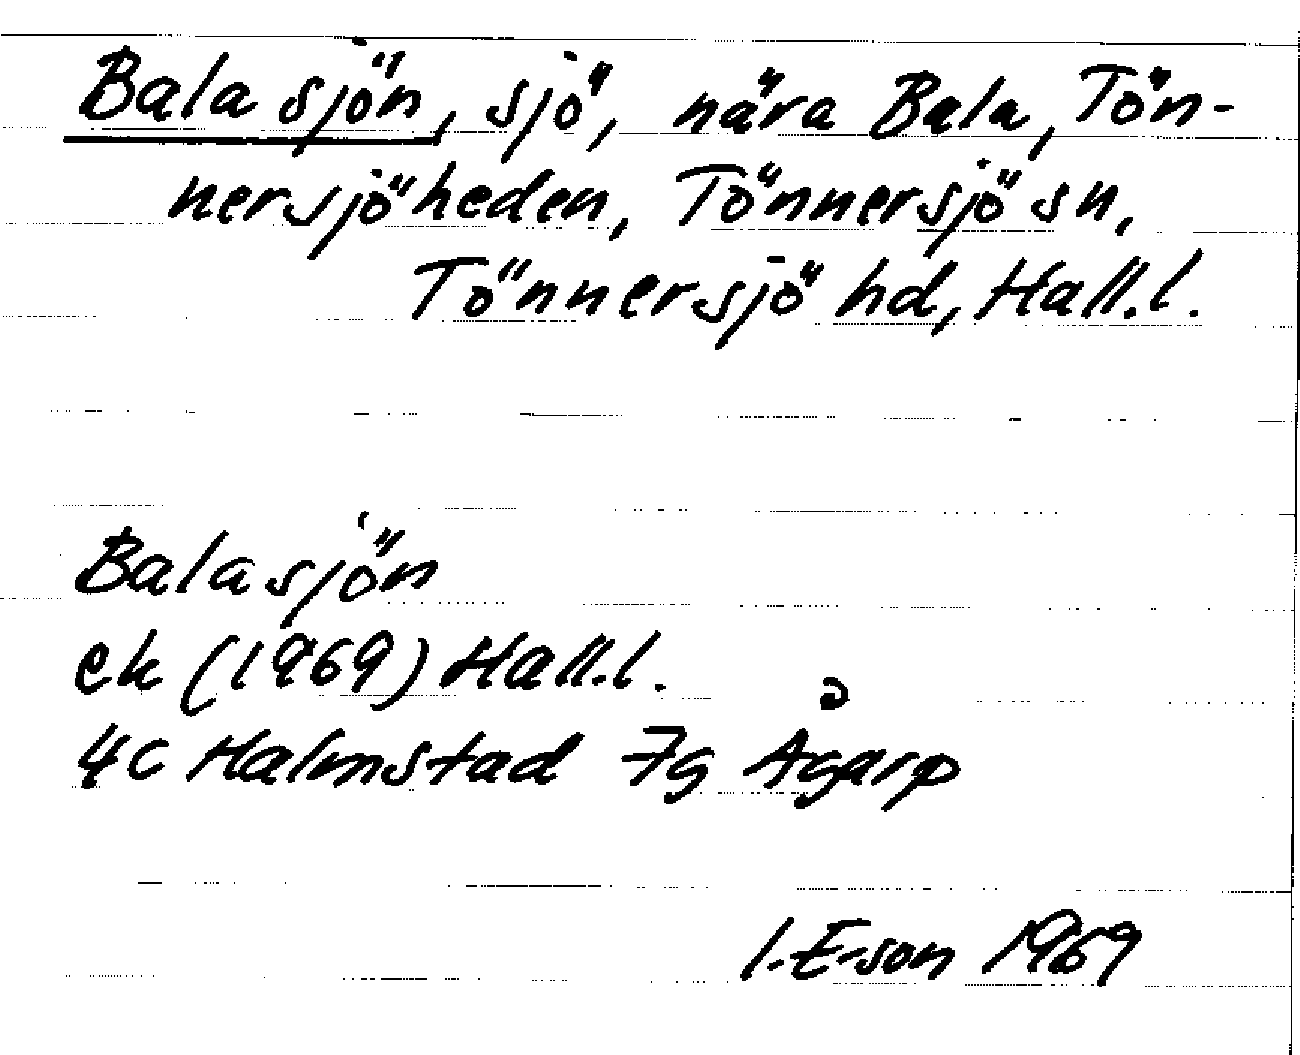 Balasjön, sjö, nära Bala, Tön-
nersjöheden, Tönnersjö sn,
Tönnersjö hd, Hall.l.
Balasjön
ek (1969) Hall.l.
4C Halmstad 7g Ågarp
I. E-son 1969